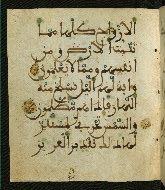 الازوج كلها مما
تنبت الارض ومن
انفسهم ومما لا يعلمون
واية لهم اليل نسلخ منه
النهار فاذا هم مظلمون
والشمس تجري لمستقر
لها ذلك تقدير العزيز